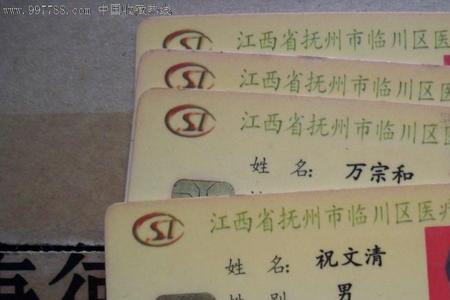 www.997788.com 中国收藏热线
江西省抚州市临川区医
江西省抚州市临川区医
江西省抚州市临川区医
姓 名: 万宗和
江西省抚州市临川区医疗
姓 名: 祝文清
性 别: 男